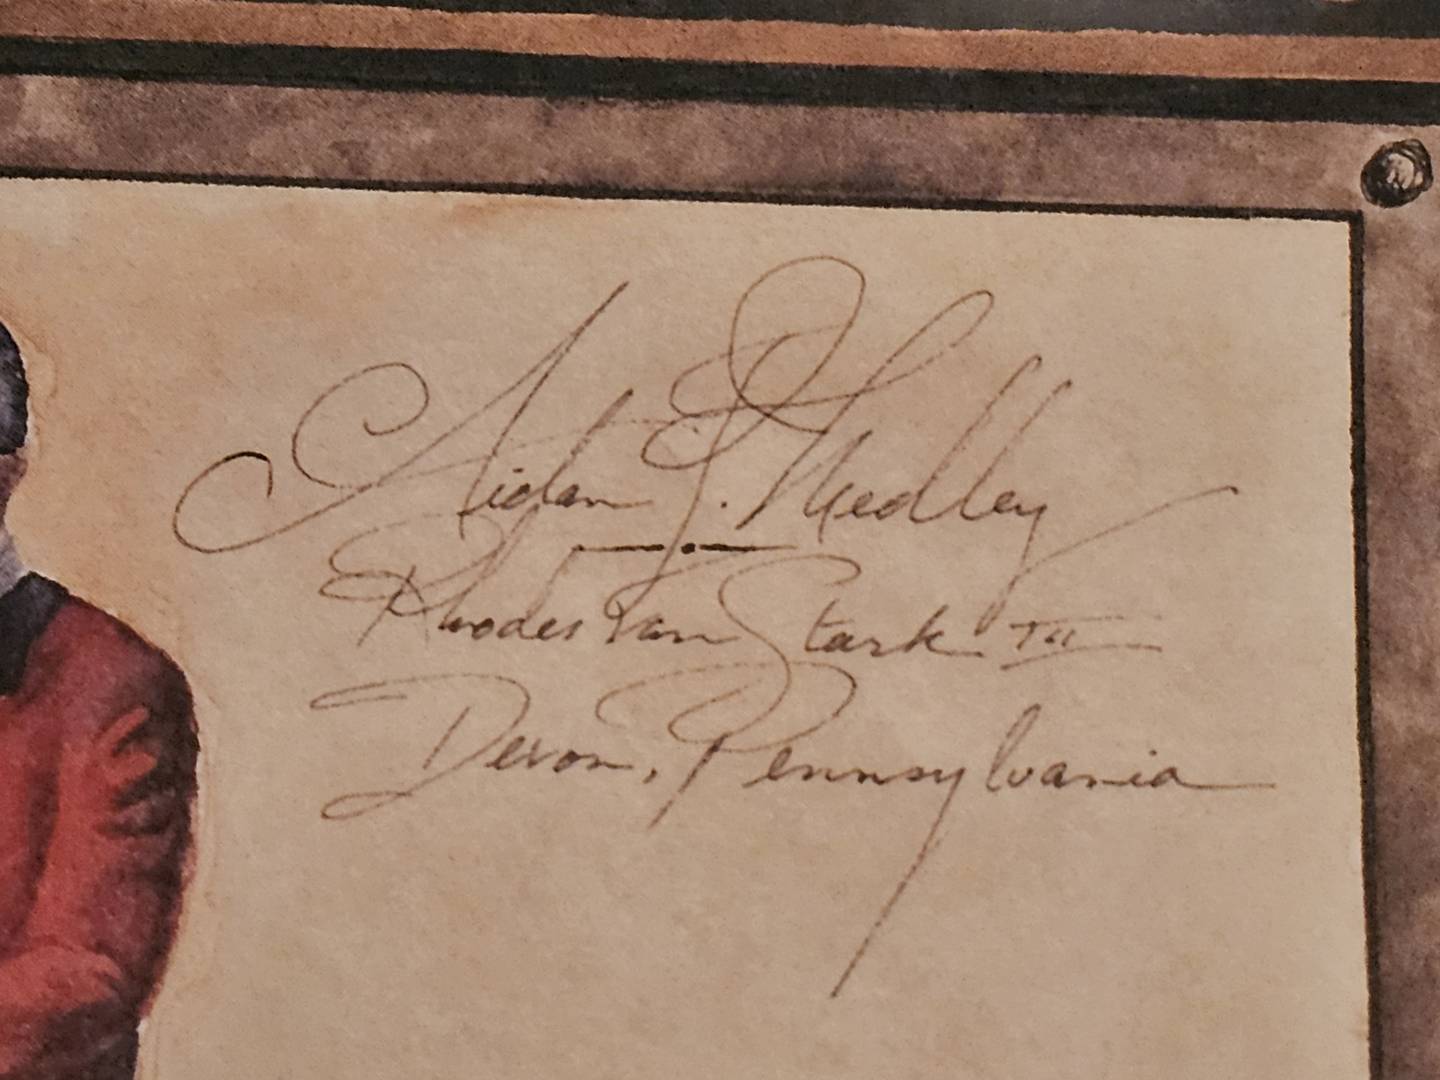 Aidan J. Medley
Rhodes van Stark III
Devon, Pennsylvania